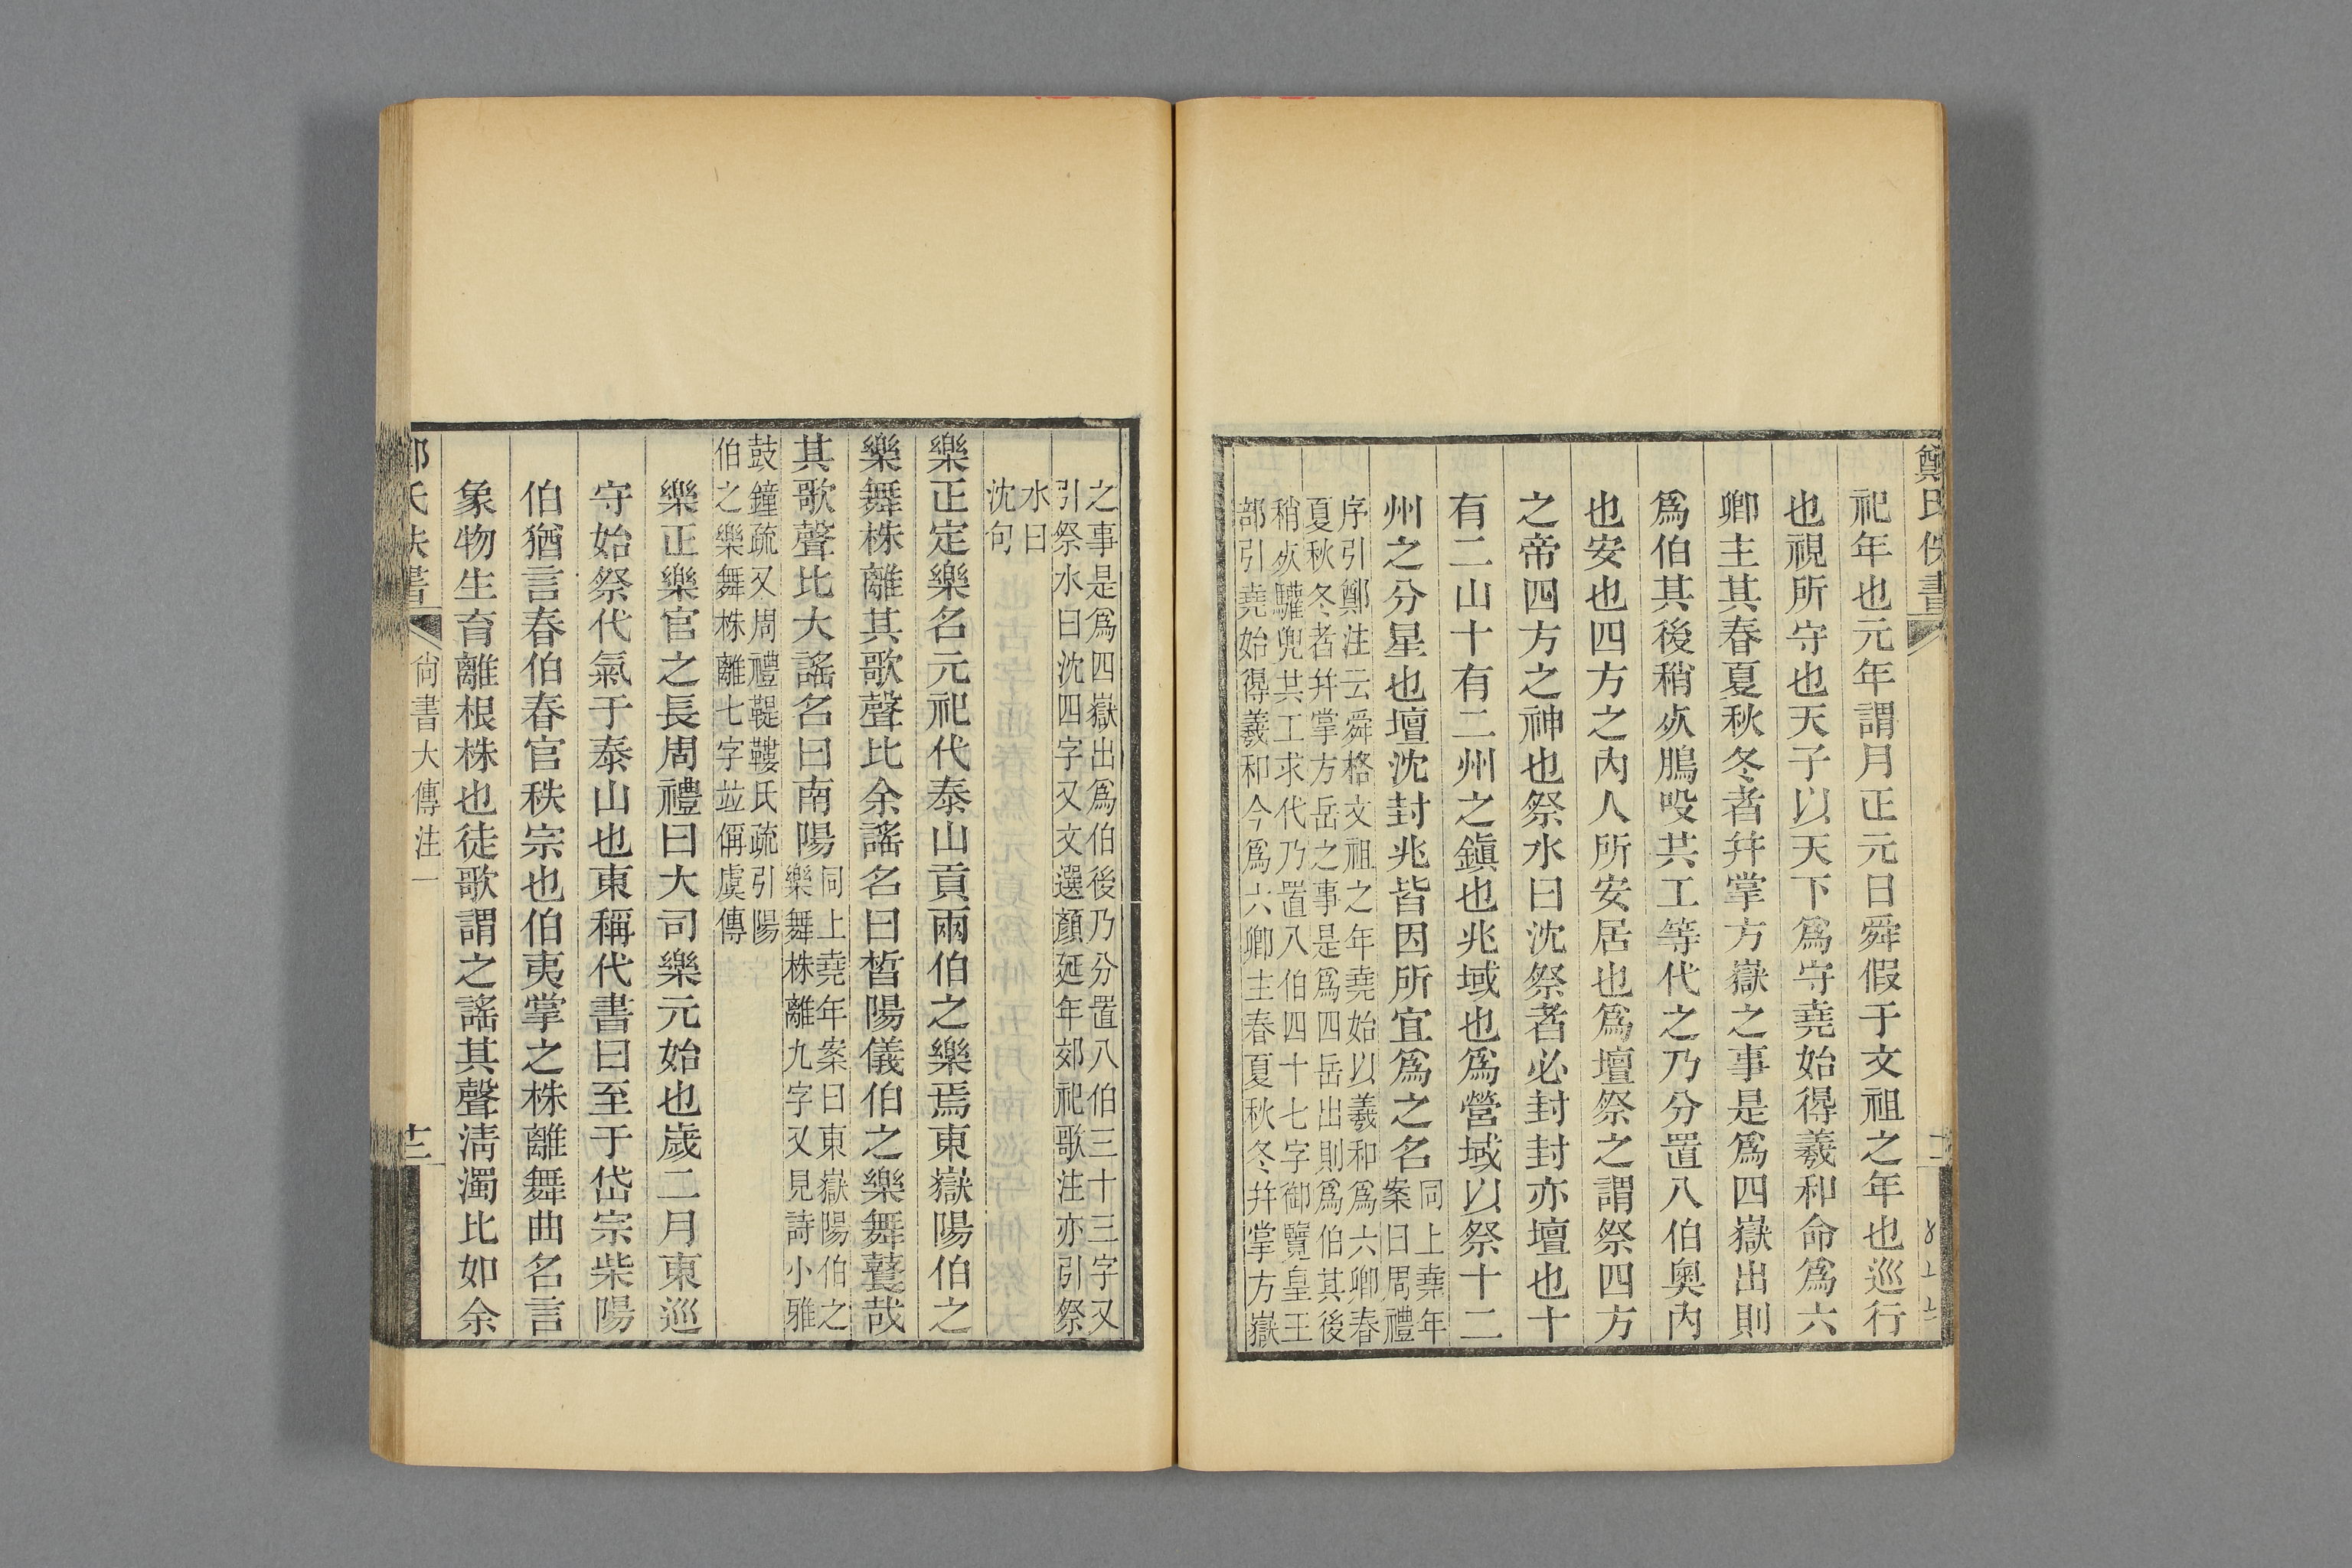 鄭氏佚書
祀年也元年謂月正元日舜假于文祖之年也巡行
也視所守也天子以天下爲守堯始得羲和命爲六
卿主其春夏秋冬者幷掌方嶽之事是爲四嶽出則
爲伯其後稍㱙鵰吺共工等代之乃分置八伯奧內
也安也四方之內人所安居也爲壇祭之謂祭四方
之帝四方之神也祭水曰沈祭者必封封亦壇也十
有二山十有二州之鎭也兆域也爲營域以祭十二
州之分星也壇沈封兆皆因所宜爲之名
同上堯年
案曰周禮
序引鄭注云舜格文祖之年堯始以羲和爲六卿春
夏秋冬者幷掌方岳之事是爲四岳出則爲伯其後
稍㱙驩兜共工求代乃置八伯四十七字御覽皇王
部引堯始得羲和今爲六卿主春夏秋冬幷掌方嶽
之事是爲四嶽出爲伯後乃分置八伯三十三字又
引祭水曰沈四字又文選顏延年郊祀歌注亦引祭
水曰
沈句
樂正定樂名元祀代泰山貢兩伯之樂焉東嶽陽伯之
樂舞株離其歌聲比余謠名曰皙陽儀伯之樂舞鼚哉
其歌聲比大謠名曰南陽
同上堯年案曰東嶽陽伯之
樂舞株離九字又見詩小雅
鼓鐘疏又周禮鞮鞻氏疏引陽
伯之樂舞株離七字竝偁虞傳
樂正樂官之長周禮曰大司樂元始也歲二月東巡
守始祭代氣于泰山也東稱代書曰至于岱宗柴陽
伯猶言春伯春官秩宗也伯夷掌之株離舞曲名言
象物生育離根株也徒歌謂之謠其聲淸濁比如余
尙書大傳注一